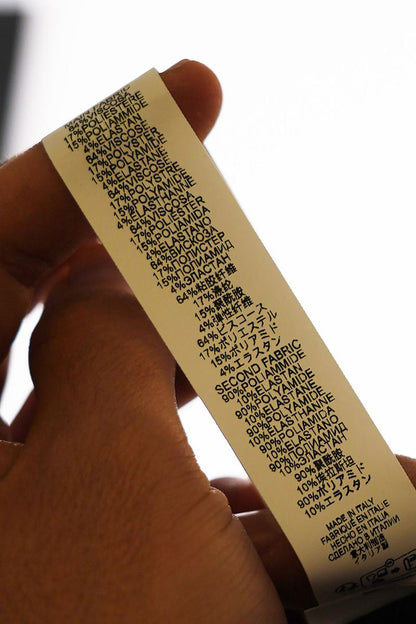 64%VISCOSE
17%POLIESTERE
15%POLIAMIDE
4%ELASTAN
64%VISCOSE
17%POLYSTER
15%POLYAMIDE
4%ELASTANE
64%VISCOSE
17%POLYSTER
15%POLYAMIDE
4%ELASTHANNE
64%VISCOSA
17%POLIESTER
15%POLIAMIDA
4%ELASTANO
64%ВИСКОЗА
17%ПОЛИЭСТЕР
15%ПОЛИАМИД
4%ЭЛАСТАН
64%粘胶纤维
17%涤纶
15%聚酰胺
4%弹性纤维
64%ビスコース
17%ポリエステル
15%ポリアミド
4%エラスタン
SECOND FABRIC
90%POLIAMIDE
10%ELASTAN
90%POLYAMIDE
10%ELASTANE
90%POLYAMIDE
10%ELASTHANNE
90%POLIAMIDA
10%ELASTANO
90%ПОЛИАМИД
10%ЭЛАСТАН
90%聚酰胺
90%ポリアミド
10%エラスタン
MADE IN ITALY
FABRIQUÉ EN ITALIE
HECHO EN ITALIA
СДЕЛАНО В ИТАЛИИ
意大利制造
イタリア製